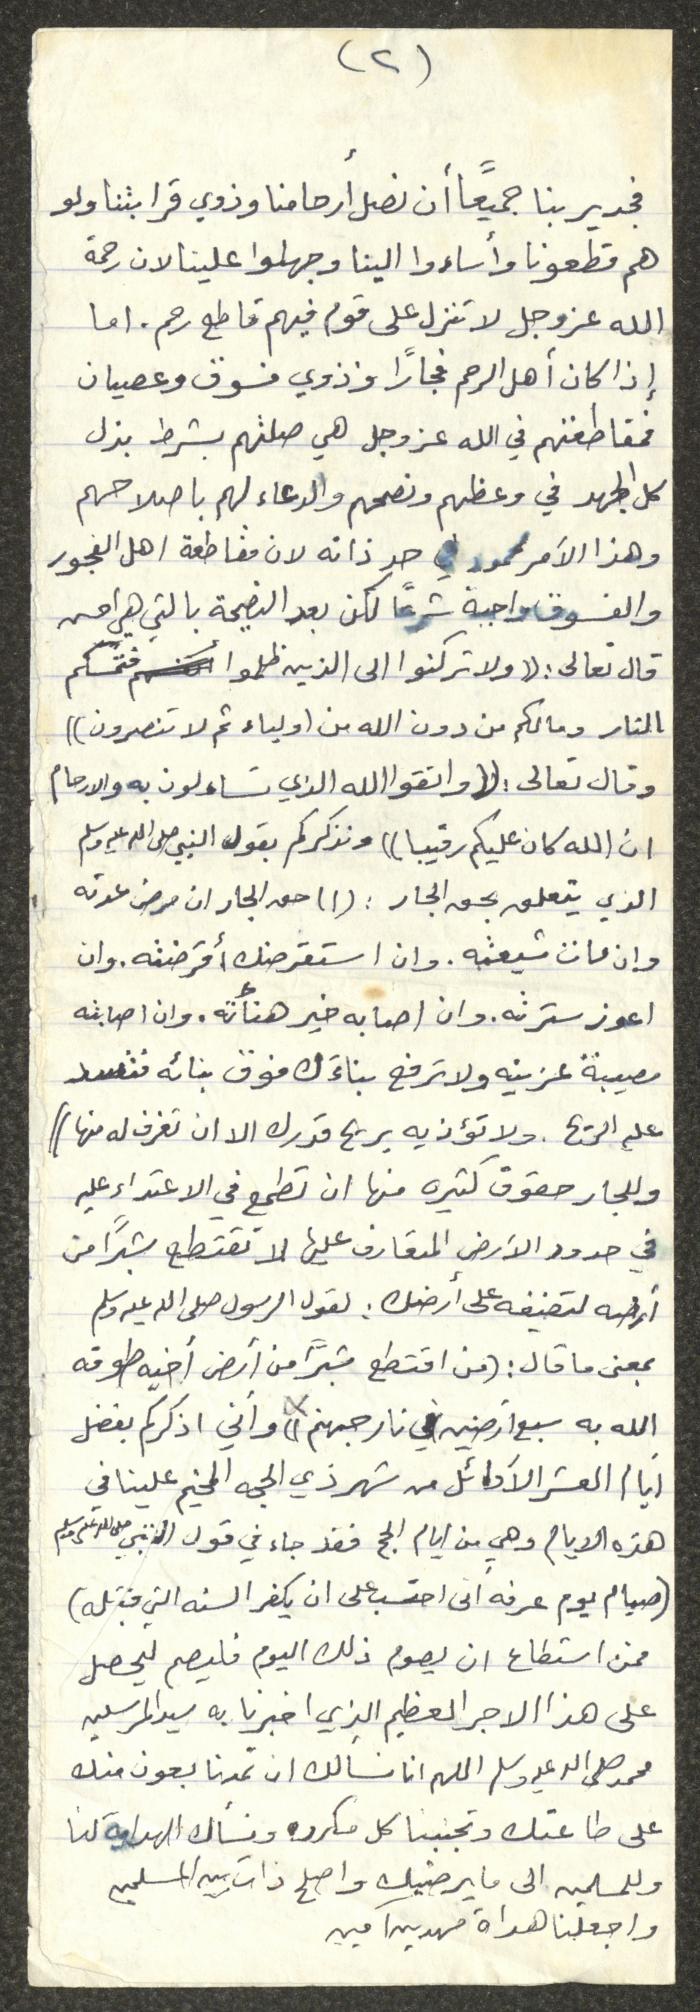 (٢)
فجدير بنا جميعًا أن نصل أرحامنا وذوي قرابتنا ولو
هم قطعونا وأساءوا الينا وجهلوا علينا لان رحمة
الله عز وجل لا تنزل على قوم فيهم قاطع رحم. اما
إذا كان أهل الرحم فجارًا وذوي فسوق وعصيان
فمقاطعتهم في الله عز وجل هي صلتهم بشرط بذل
كل الجهد في وعظهم ونصحهم والدعاء لهم باصلاحهم
وهذا الأمر محمود في حد ذاته لان مقاطعة اهل الفجور
والفسوق واجبة شرعًا لكن بعد النصيحة بالتي هي احسن
قال تعالى: (( ولا تركنوا الى الذين ظلموا فتمسكم
النار ومالكم من دون الله من اولياء ثم لا تنصرون ))
وقال تعالى: (( واتقوا الله الذي تساءلون به والارحام
ان الله كان عليكم رقيبا )) ونذكركم بقول النبي صلى الله عليه وسلم
الذي يتعلق بحق الجار : (( حق الجار ان مرض عدته
وان مات شيعته. وان استقرضك أقرضته. وان
اعوز سترته. وان اصابه خير هنأته. وان اصابته
مصيبة عزيته ولا ترفع بناءك فوق بنائه فتسد
عليه الريح. ولا تؤذيه بريح قدرك الا ان تغرف له منها ))
وللجار حقوق كثيره منها ان تطمع في الاعتداء عليه
في حدود الأرض المتعارف عليها لا تقتطع شبرًا من
أرضه لتضيفه على أرضك: لقول الرسول صلى الله عليه وسلم
بمعنى ما قال: (من اقتطع شبرًا من أرض أخيه طوقه
الله به سبع أرضين في نار جهنم )) وأني اذكركم بفضل
أيام العشر الأوائل من شهر ذي الحجه المخيم علينا في
هذه الايام وهي من ايام الحج فقد جاء في قول النبي صلى الله عليه وسلم
(صيام يوم عرفه أنى احتسب على ان يكفر السنه التي قبله)
فمن استطاع ان يصوم ذلك اليوم فليصم ليحصل
على هذا الاجر العظيم الذي اخبرنا به سيد المرسلين
محمد صلى الله عليه وسلم اللهم انا نسألك ان تمدنا بعون منك
على طاعتك وتجنبنا كل مكروه ونسألك الهداية لنا
وللمسلمين الى ما يرضيك واصلح ذات بين المسلمين
واجعلنا هداة مهدين آمين